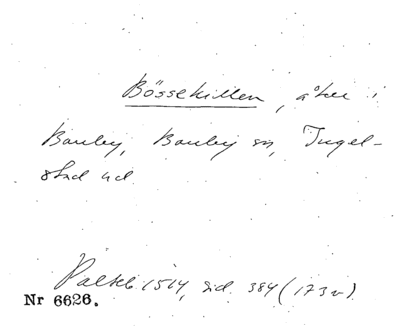 Bössekillen, åker i
Bauby, Bauby sn, Ingel-
stad hd
Palteb. 1514, sid. 384 (173v)
Nr 6626.